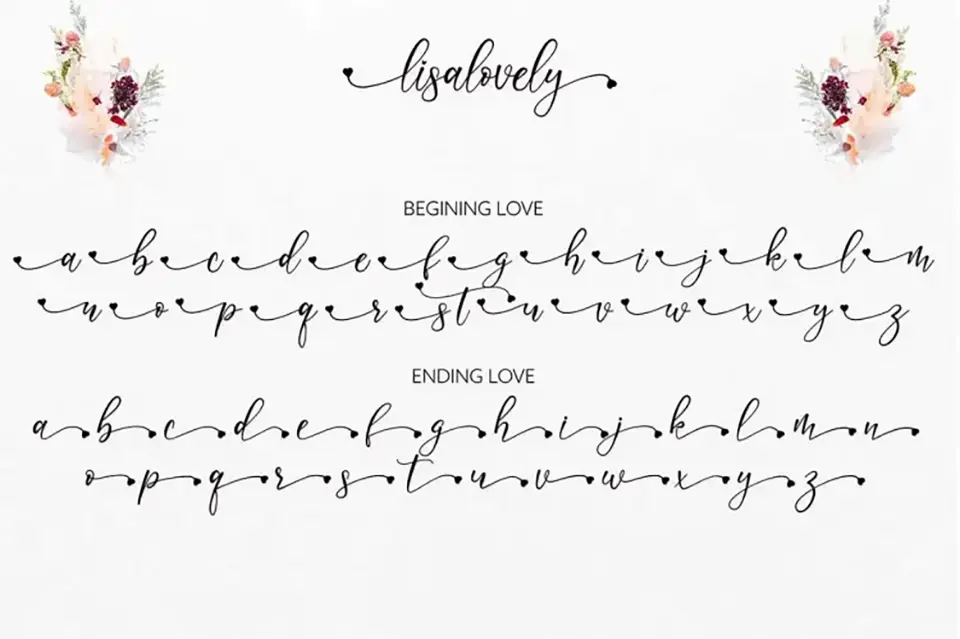 lisalovely
BEGINING LOVE
a b c d e f g h i j k l m
n o p q r s t u v w x y z
ENDING LOVE
a b c d e f g h i j k l m n
o p q r s t u v w x y z